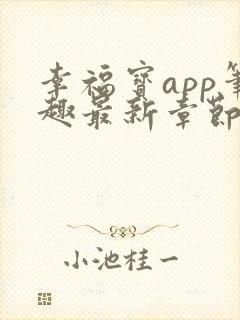 幸福宝app笔
趣最新章节
小池桂一